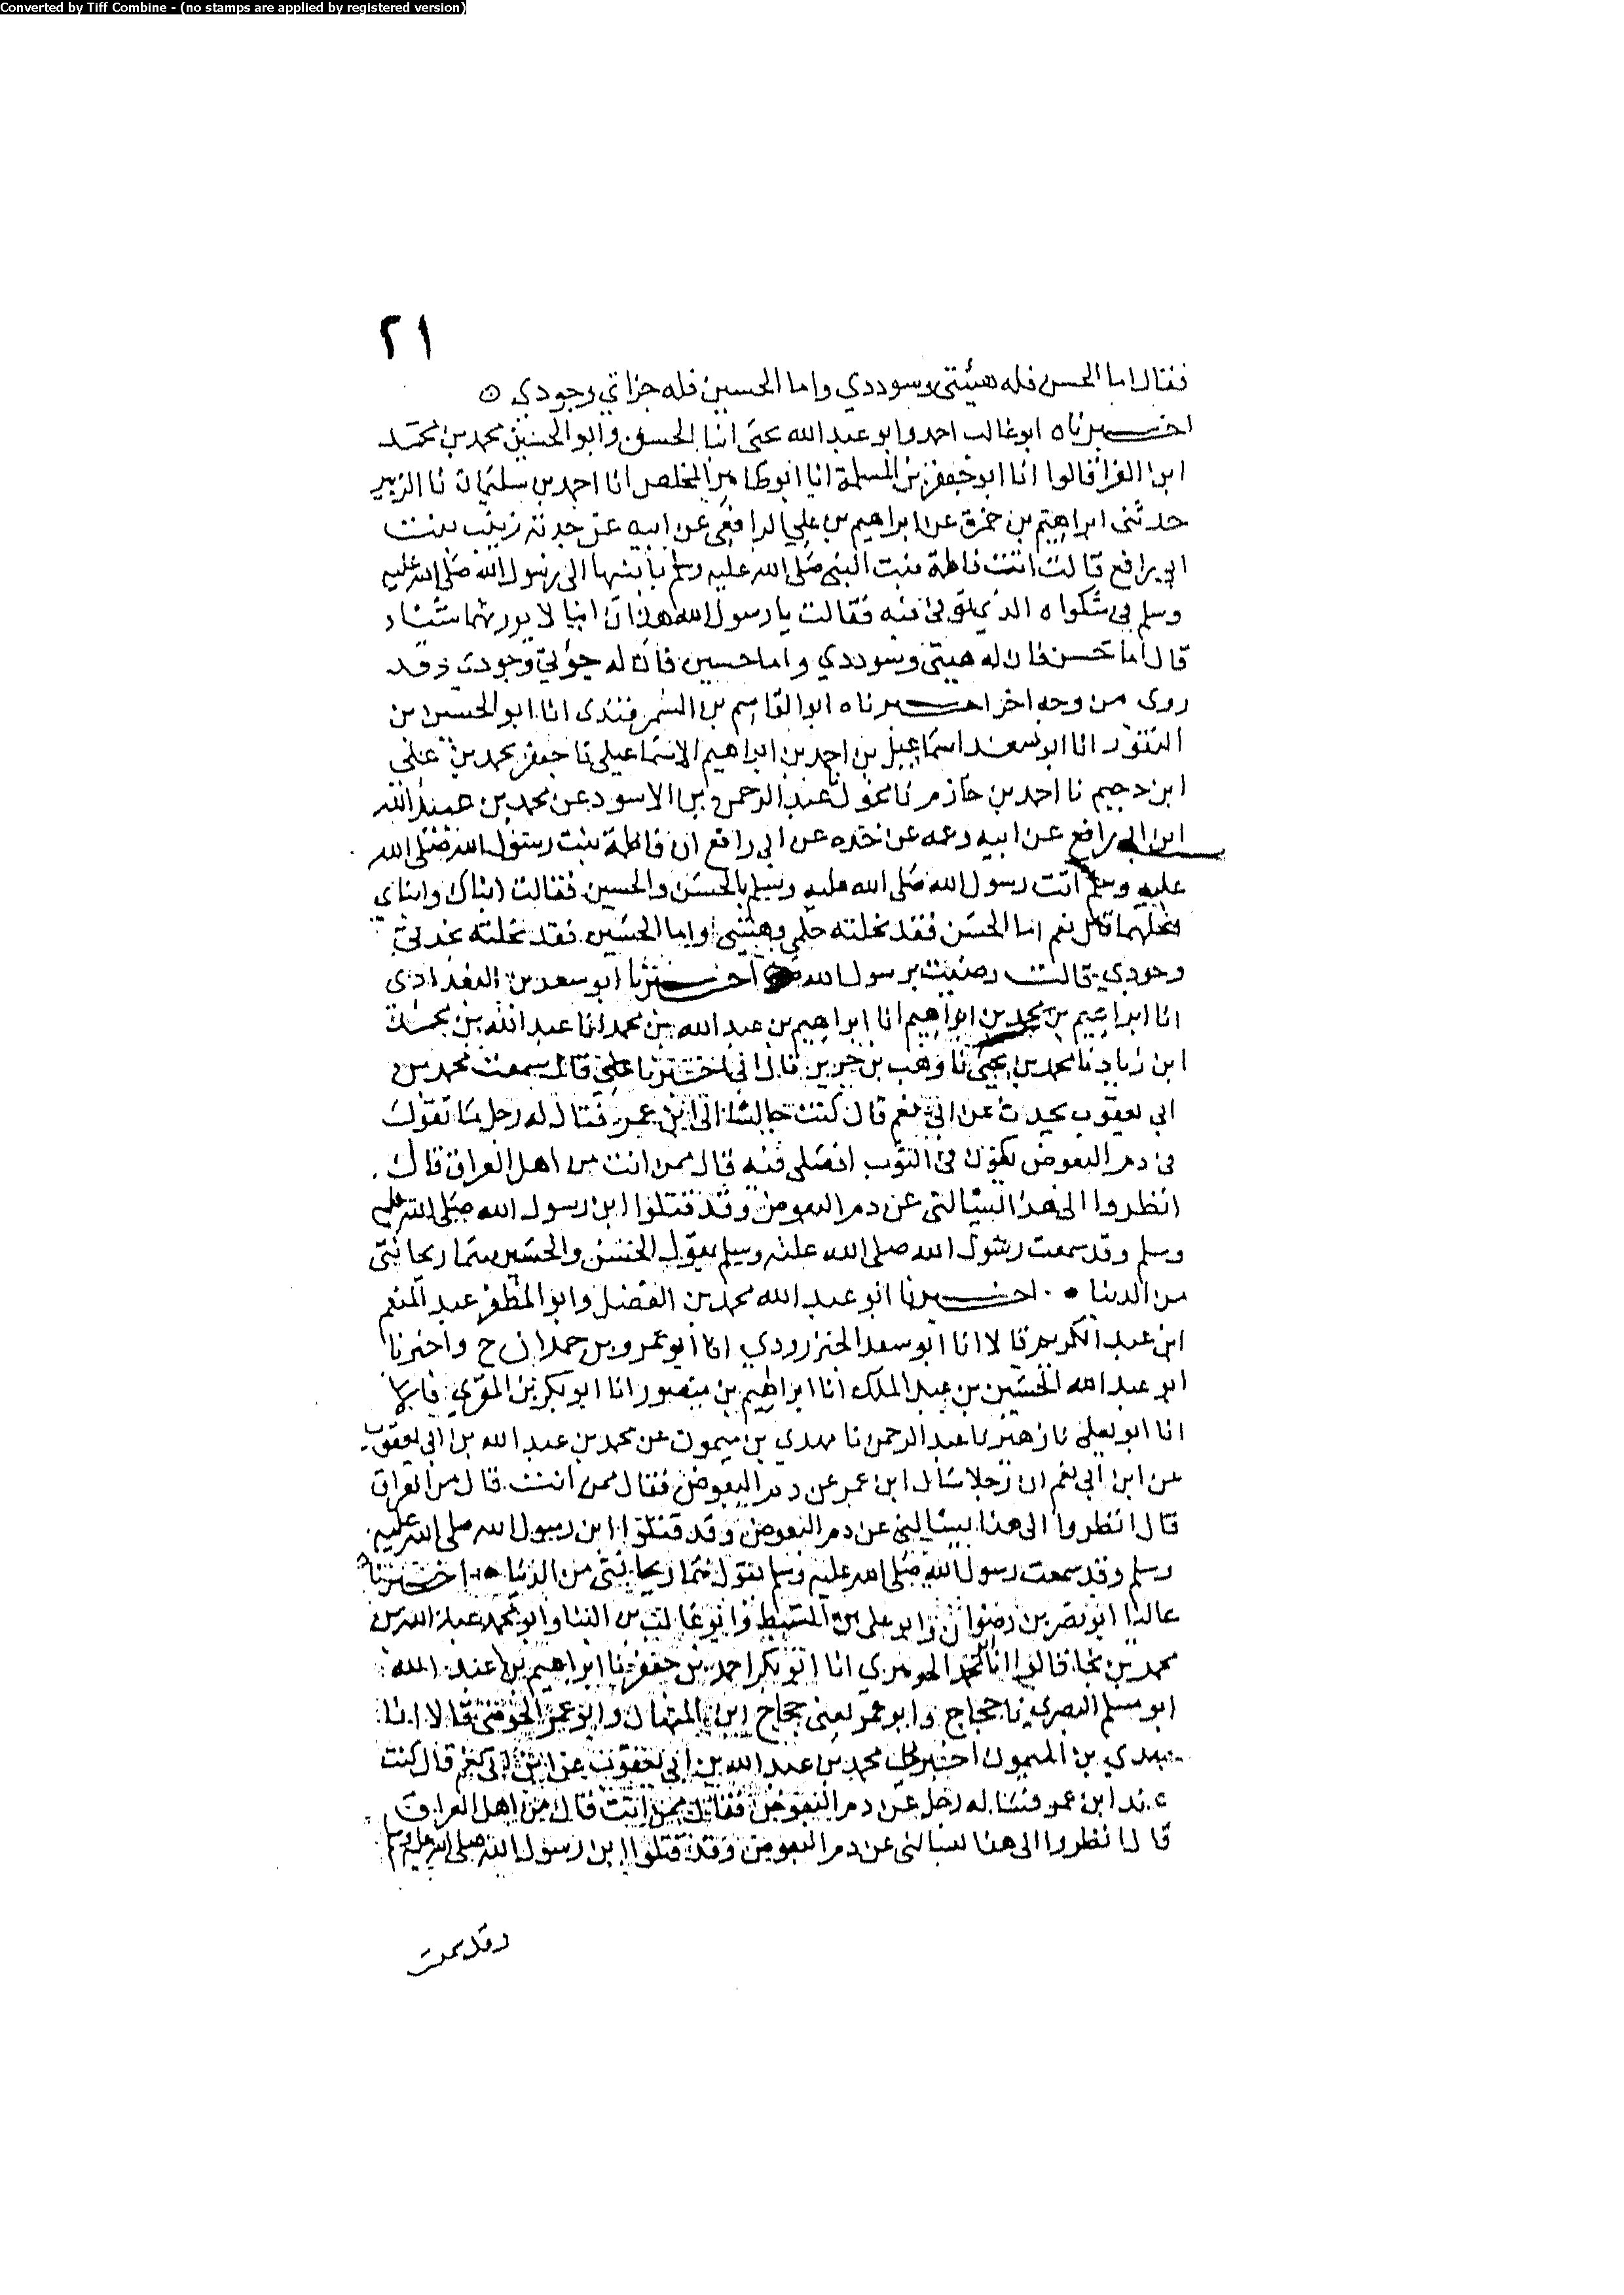 Converted by Tiff Combine - (no stamps are applied by registered version)
٢١
فقال اما الحسن فله هيئتي وسوددي واما الحسين فله جزاتي وجودي ⊙
اخبرناه ابو غالب احمد وابو عبد الله يحيى انبا الحسن وابو الحسين محمد بن محمد
ابن الفرا قالوا انا ابو جعفر بن المسلمة انا ابو طاهر المخلص انا احمد بن سليمان نا الزبير
حدثني ابراهيم بن حمزة عن ابراهيم بن علي الرافعي عن ابيه عن جدته زينب بنت
ابي رافع قالت اتت فاطمة بنت النبي صلى الله عليه وسلم بابنيها الى رسول الله صلى الله عليه
وسلم في شكواه الذي توفي فيه فقالت يا رسول الله هذان ابنا لا يورثهما شيئا
قال اما حسن فان له هيبتي وسوددي واما حسين فان له جرأتي وجودي وقد
روى من وجه اخر اخبرناه ابو القاسم بن السمرقندي انا ابو الحسين بن
النقور انا ابو سعد اسماعيل بن احمد بن ابراهيم الاسماعيلي نا جعفر محمد بن علي
ابن دحيم نا احمد بن حازم نا مخول عبد الرحمن بن الاسود عن محمد بن عبيد الله
ابن ابي رافع عن ابيه وعمه عن جده عن ابي رافع ان فاطمة بنت رسول الله صلى الله
عليه وسلم اتت رسول الله صلى الله عليه وسلم بالحسن والحسين فقالت ابناك وابناي
انحلهما قال نعم اما الحسن فقد نحلته حلمي وهيبتي واما الحسين فقد نحلته نجدتي
وجودي قالت رضيت يرسول الله اخبرنا ابو سعد بن البغدادي
انا ابراهيم بن محمد بن ابراهيم انا ابراهيم بن عبد الله بن محمد انا عبد الله بن محمد
ابن زياد نا محمد بن يحيى نا وهب بن جرير قال ابي اخبرنا علي قال سمعت محمد بن
ابي يعقوب يحدث عن ابي نعم قال كنت جالسا الى ابن عمر فقال له رجل ما تقول
في دم البعوض يكون في الثوب اصلي فيه قال ممن انت من اهل العراق قال
انظروا الى هذا يسالني عن دم البعوض وقد قتلوا ابن رسول الله صلى الله عليه
وسلم وقد سمعت رسول الله صلى الله عليه وسلم يقول الحسن والحسين هما ريحانتي
من الدنيا • اخبرنا ابو عبد الله محمد بن الفضل وابو المظفر عبد المنعم
ابن عبد الكريم قالا انا ابو سعد الخنزرودي انا ابو عمرو بن حمدان ح واخبرنا
ابو عبد الله الحسين بن عبد الملك انا ابراهيم بن منصور انا ابو بكر بن المقري قالا
انا ابو يعلى نا زهير نا عبد الرحمن نا مهدي بن ميمون عن محمد بن عبد الله بن ابي يعقوب
عن ابن ابي نعم ان رجلا سال ابن عمر عن دم البعوض فقال ممن انت قال من العراق
قال انظروا الى هذا يسالني عن دم البعوض وقد قتلوا ابن رسول الله صلى الله عليه
وسلم وقد سمعت رسول الله صلى الله عليه وسلم يقول هما ريحانتي من الدنيا • اخبرنا
عاليا ابو نصر بن رضوان وابو علي بن السبط وابو غالب بن البنا وابو محمد عبد الله بن
محمد بن نجا قالوا انا ابو محمد الجوهري انا ابو بكر احمد بن جعفر نا ابراهيم بن عبد الله
ابو مسلم البصري نا حجاج وابو عمر يعني حجاج ابن المنهال وابو عمر الحوضي قالا انا
مهدي بن الميمون اخبرني محمد بن عبد الله بن ابي يعقوب عن ابن ابي نعم قال كنت
عند ابن عمر فساله رجل عن دم البعوض فقال ممن انت قال من اهل العراق
قال انظروا الى هذا يسالني عن دم البعوض وقد قتلوا ابن رسول الله صلى الله عليه وسلم
وقد سمعت